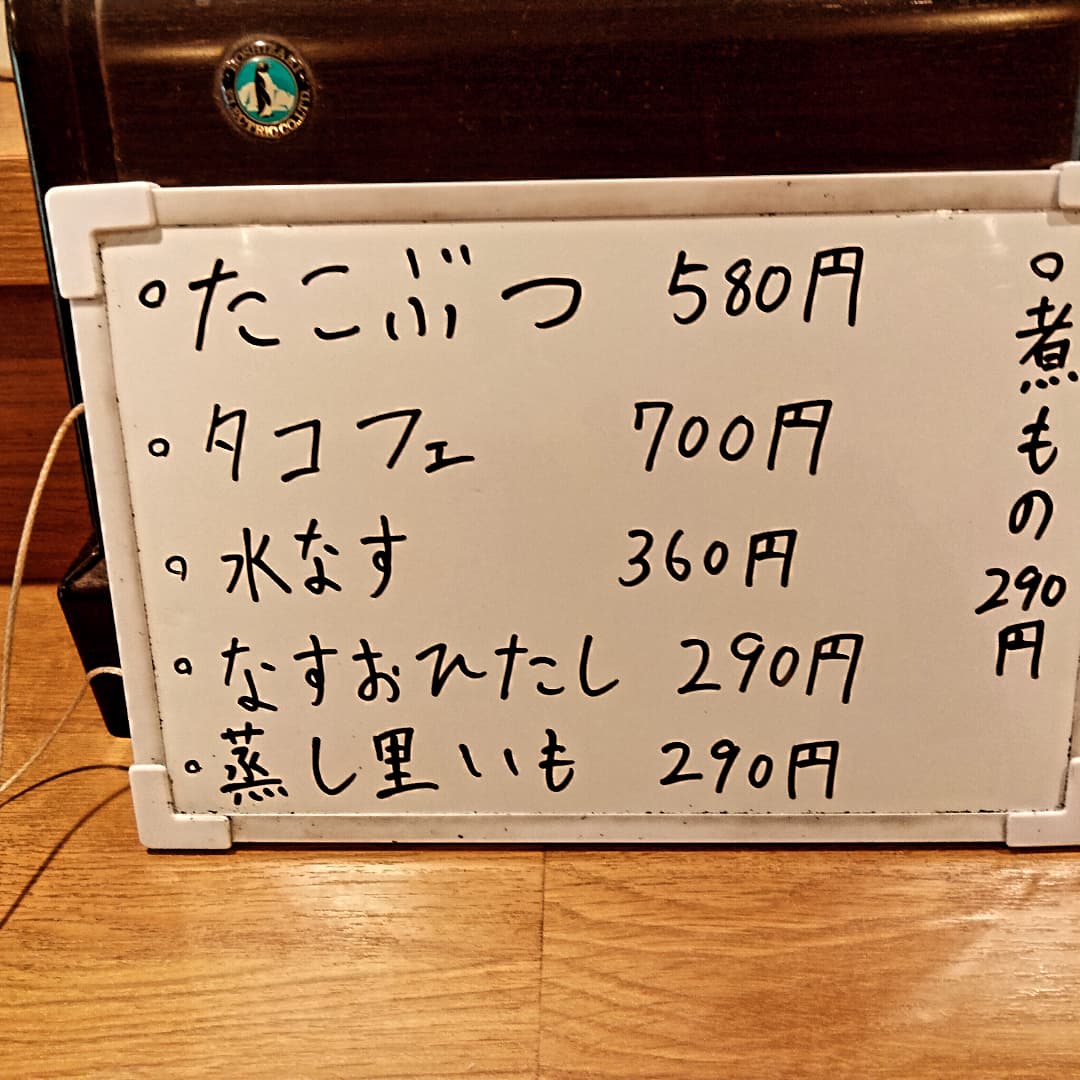 HOSHIZAKI ELECTRIC CO., LTD.
○たこぶつ 580円
○タコフェ 700円
○水なす 360円
○なすおひたし 290円
○蒸し里いも 290円
○煮もの290円